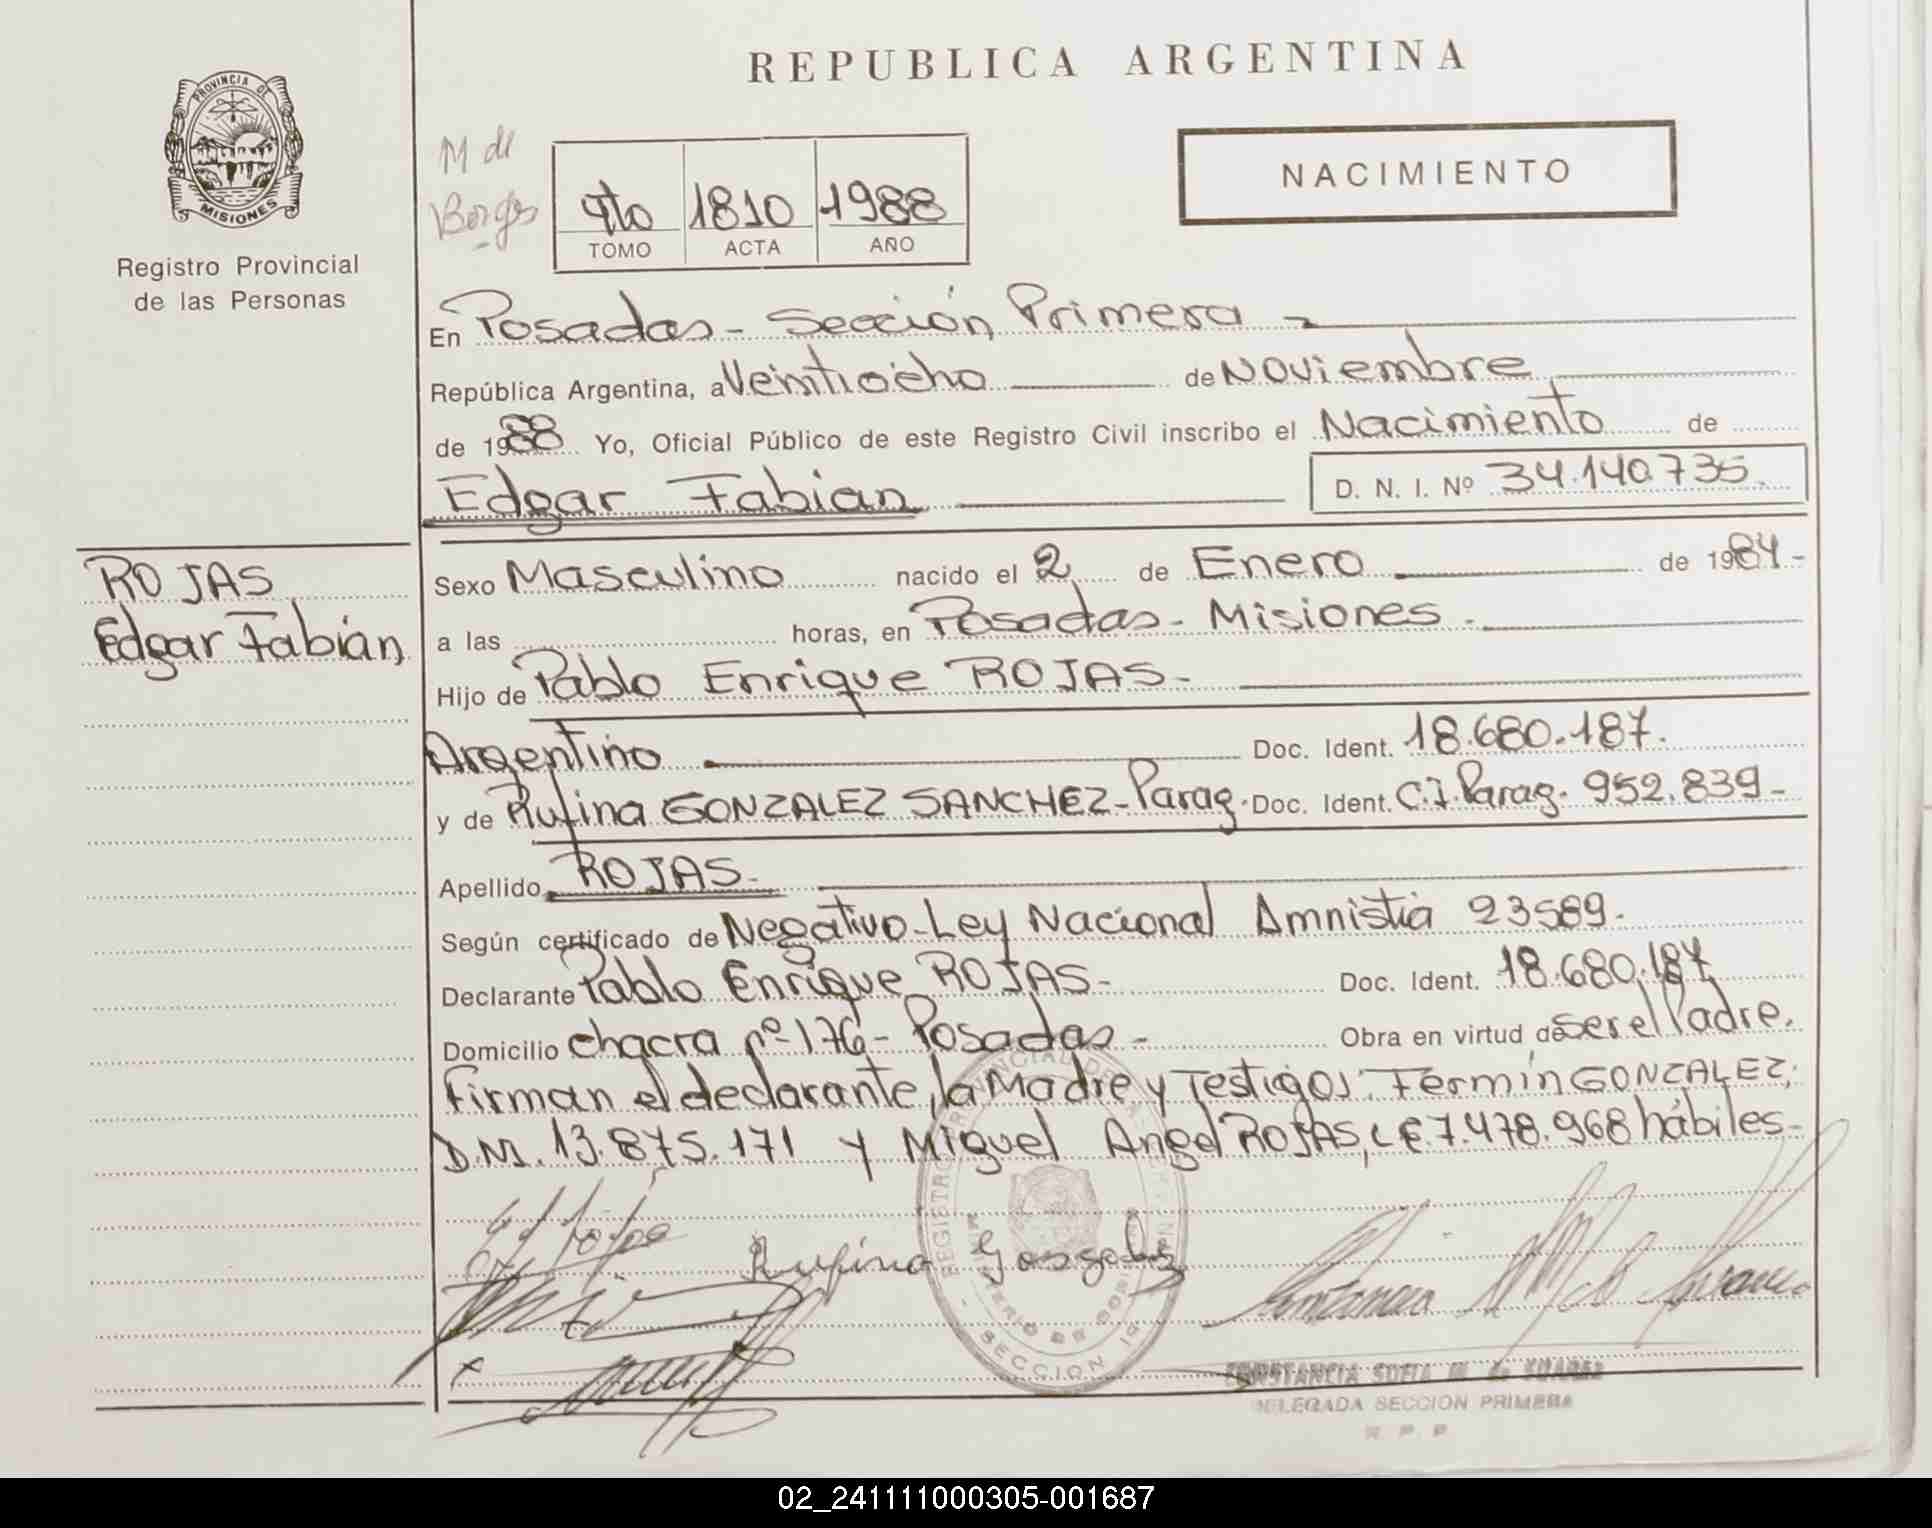 REPUBLICA ARGENTINA
PROVINCIA DE
MISIONES
Registro Provincial
de las Personas
M de
Borges
4to 1810 1988
TOMO ACTA AÑO
NACIMIENTO
En Posadas - Sección Primera -
República Argentina, a Veintiocho de Noviembre
de 1988 Yo, Oficial Público de este Registro Civil inscribo el Nacimiento de
Edgar Fabian D. N. I. Nº 34.140.735.
ROJAS
Edgar Fabián
Sexo Masculino nacido el 2 de Enero de 1984-
a las horas, en Posadas - Misiones.
Hijo de Pablo Enrique ROJAS-
Argentino Doc. Ident. 18.680.187.
y de Rufina GONZALEZ SANCHEZ-Parag. Doc. Ident. C.I. Parag. 952.839-
Apellido ROJAS-
Según certificado de Negativo-Ley Nacional Amnistia 23589.
Declarante Pablo Enrique ROJAS- Doc. Ident. 18.680.187
Domicilio chacra nº 176 - Posadas - Obra en virtud de ser el Padre.
Firman el declarante, la Madre y Testigos: Fermín GONZALEZ,
D.N.I. 13.875.171 y Miguel Angel ROJAS, L E 7.478.968 hábiles-
Rufina Gonzalez
REGISTRO PROVINCIAL DE LAS
MINISTERIO DE GOBIERNO
SECCION 1a
CONSTANCIA SOFIA M. de SUAREZ
DELEGADA SECCION PRIMERA
R P P
02_241111000305-001687